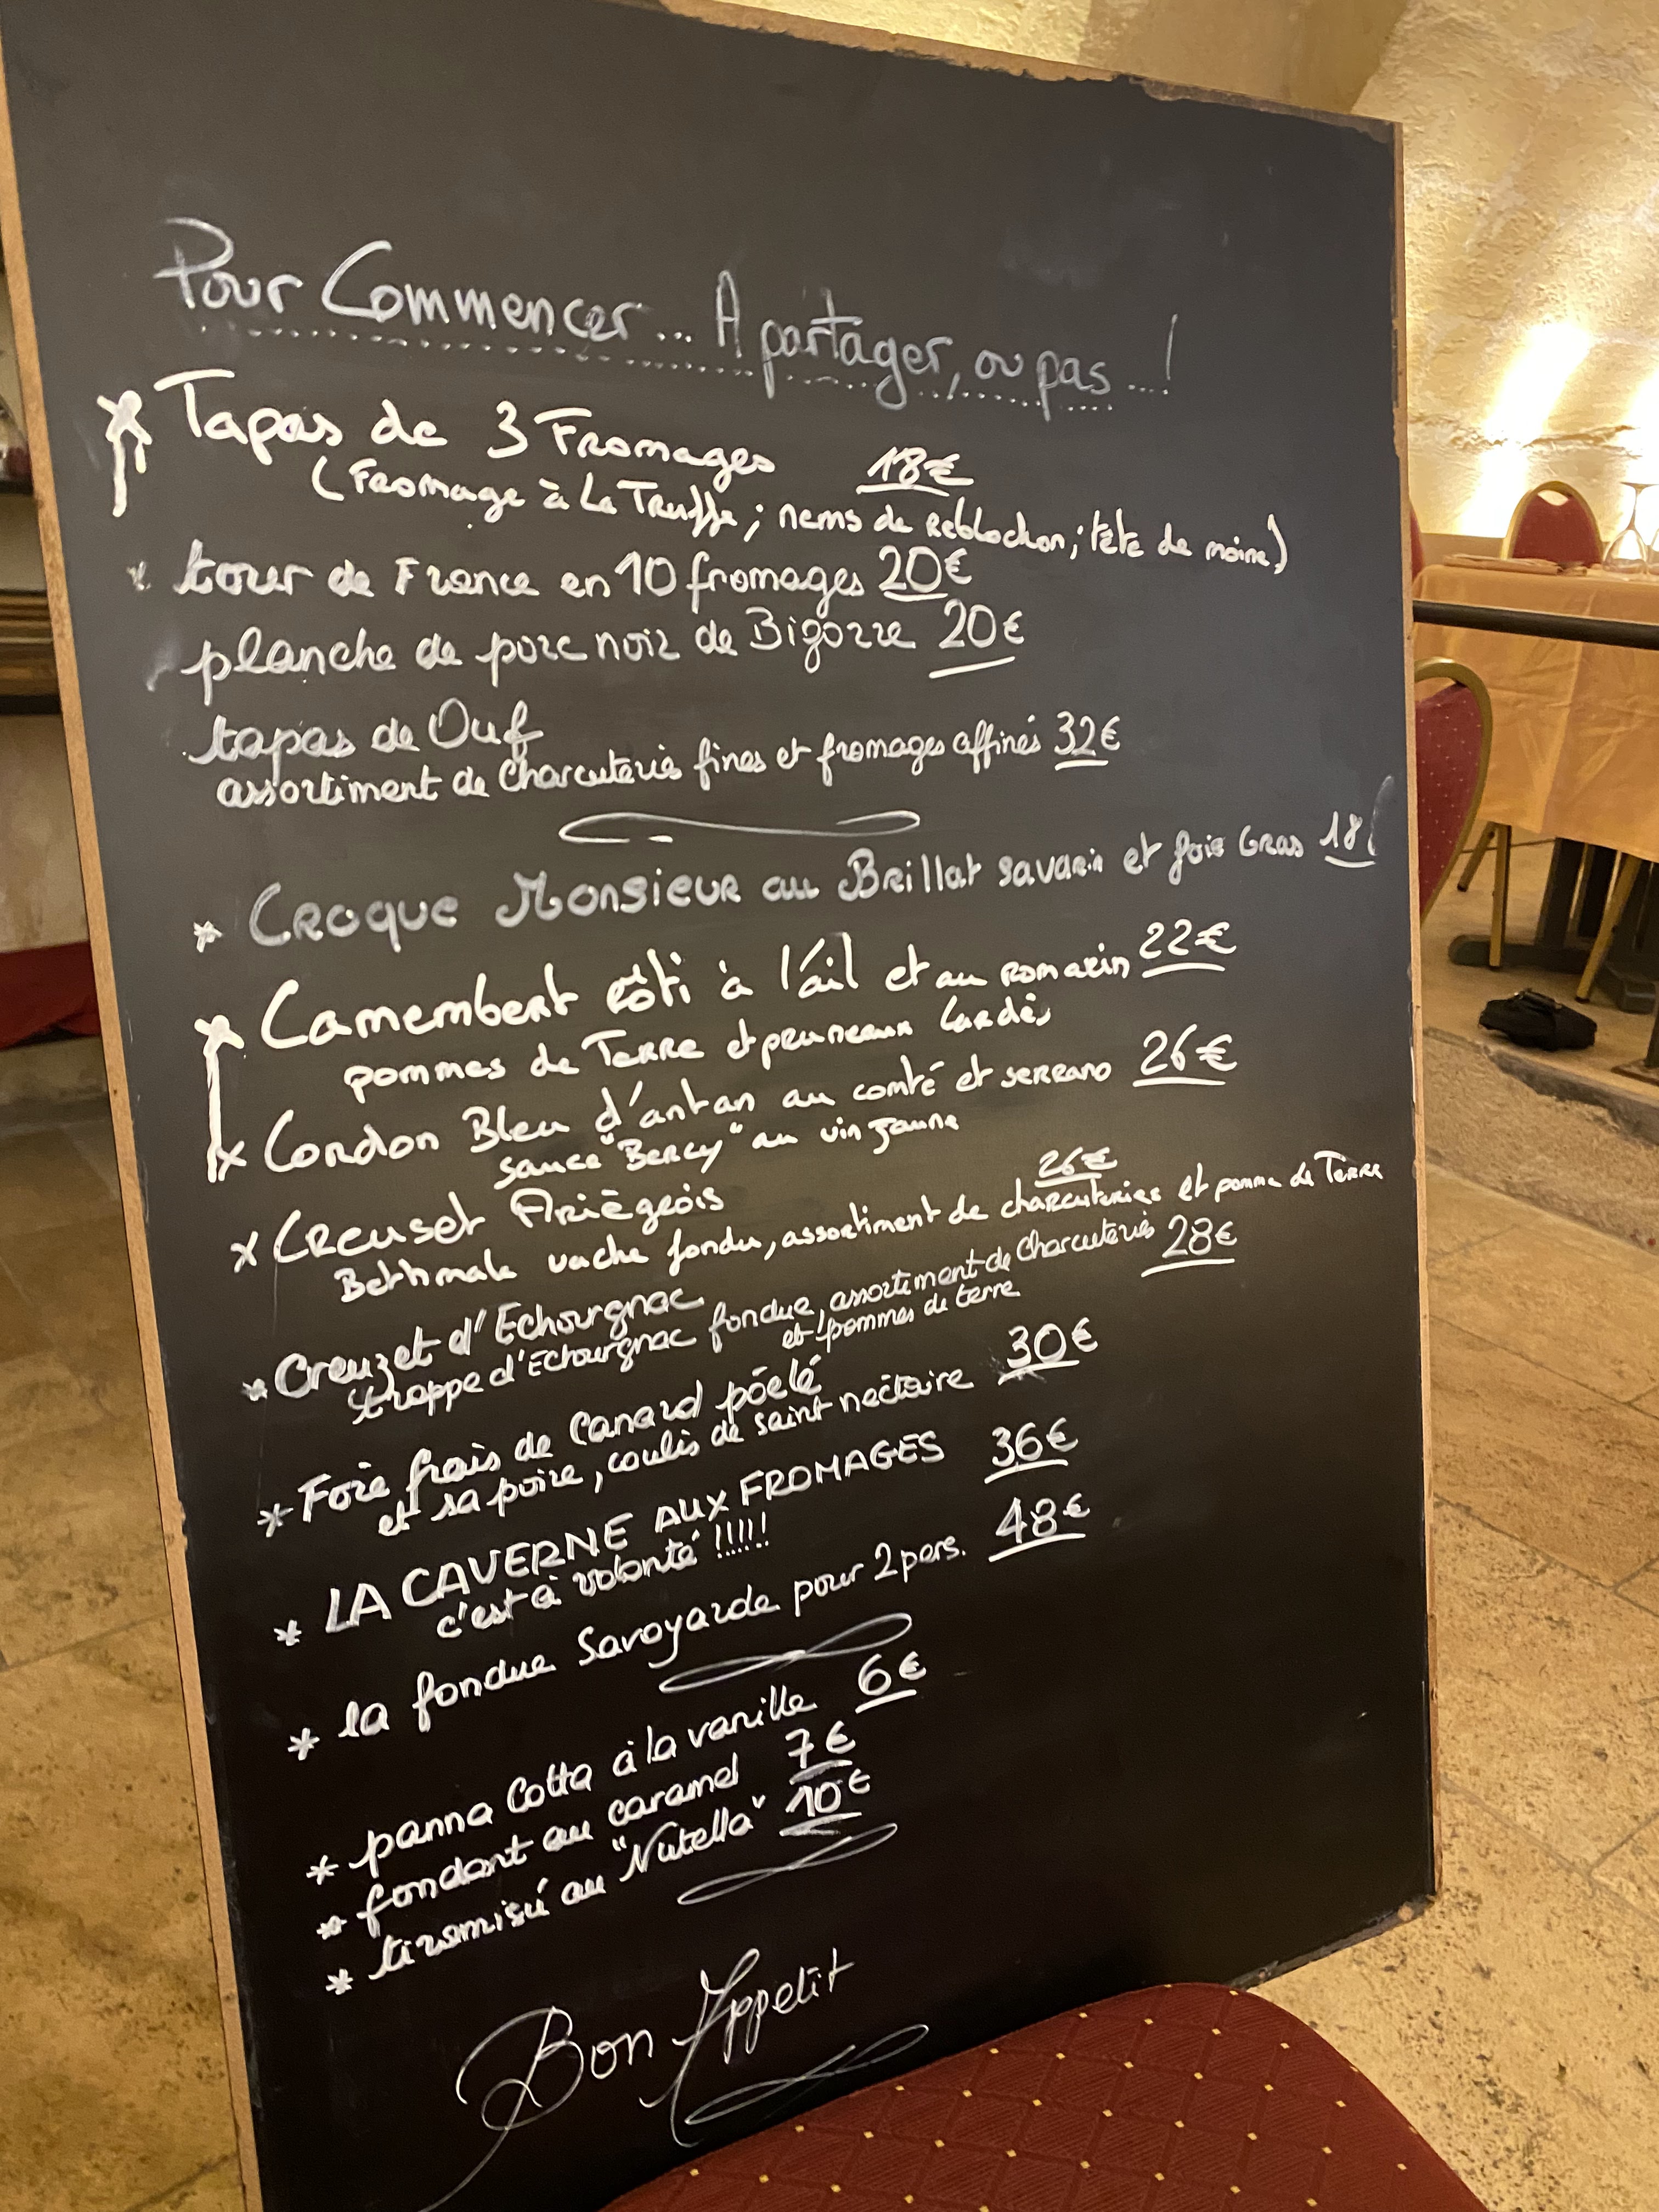 Pour Commencer... A partager, ou pas...!
* Tapas de 3 Fromages 18€
(Fromage à La Truffe; nems de Reblochon; tête de moine)
* tour de France en 10 fromages 20€
planche de porc noir de Bigorre 20€
tapas de Ouf
assortiment de Charcuteries fines et fromages affinés 32€
* Croque Monsieur au Brillat savarin et foie Gras 18
* Camembert rôti à l'ail et au romarin 22€
pommes de Terre et pruneaux Lardés
* Cordon Bleu d'antan au comté et serrano 26€
sauce "Bercy" au vin jaune
* Creuset Ariègeois 26€
Bethmale vache fondu, assortiment de charcuteries et pomme de Terre
* Creuzet d'Echourgnac 28€
trappe d'Echourgnac fondue, assortiment de Charcuteries
et pommes de terre
* Foie frais de Canard pöelé
et sa poire, coulis de saint nectaire 30€
* LA CAVERNE AUX FROMAGES 36€
c'est à volonté !!!!!
* la fondue Savoyarde pour 2 pers. 48€
* panna Cotta à la vanille 6€
* fondant au caramel 7€
* tiramisú au "Nutella" 10€
Bon Appetit